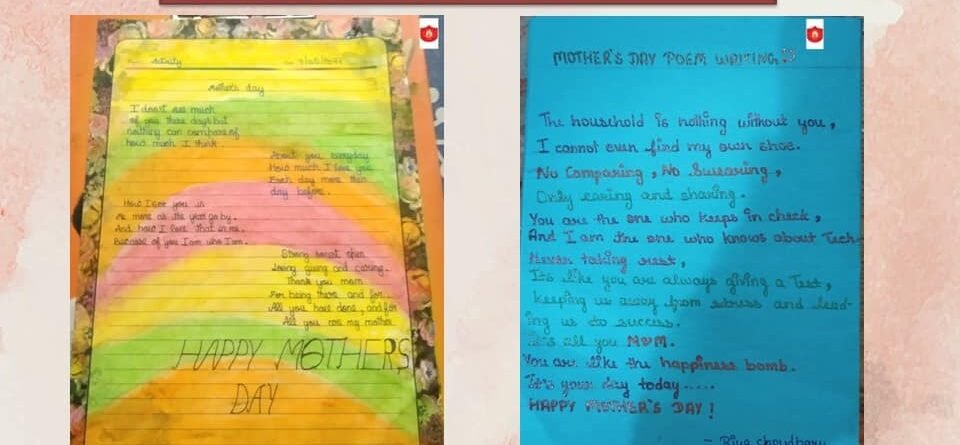 Activity
Mother's day
I don't see much
of you these days but
nothing can compare of
how much I think
About you everyday
How much I love you
Each day more than
day before.
How I see you in
Me more as the years go by.
And how I love that in me.
Because of you I am who I am.
Strong honest open
loving giving and caring.
Thank you mom
For being there and for
All you have done, and for
All you are my mother
HAPPY MOTHERS
DAY
MOTHER'S DAY POEM WRITING
The household is nothing without you,
I cannot even find my own shoe.
No Comparing, No Swearing,
Only caring and sharing.
You are the one who keeps in check,
And I am the one who knows about Tech.
Never taking rest,
It's like you are always giving a Test,
Keeping us away from stress and lead-
ing us to success.
It's all you MOM.
You are like the happiness bomb.
It's your day today.....
HAPPY MOTHER'S DAY!
- Riya Choudhary